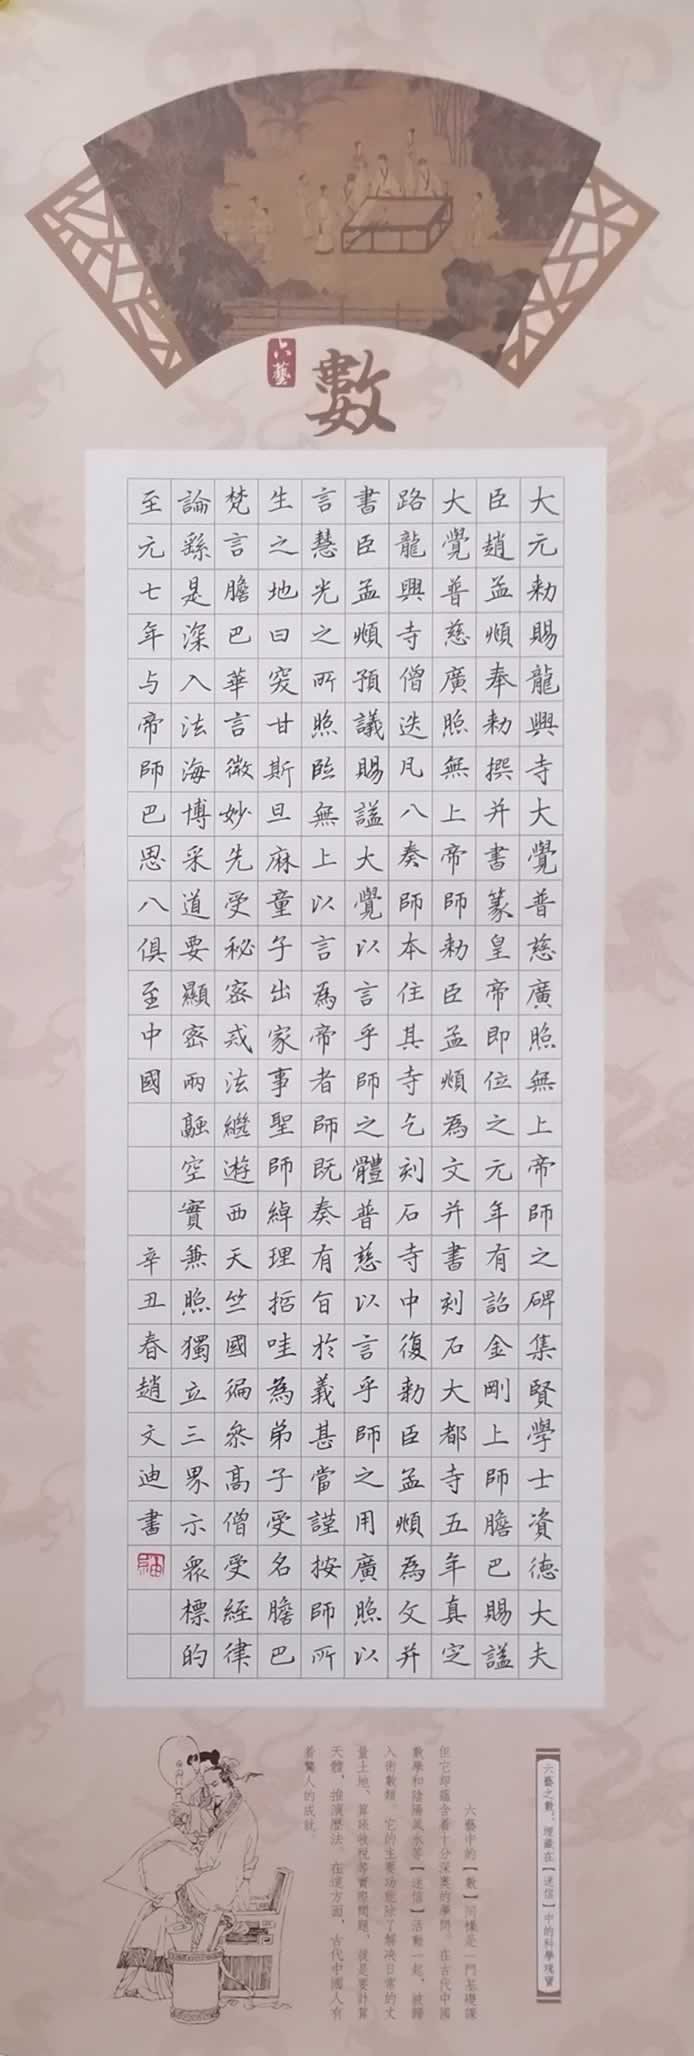 六藝
數
大元勅賜龍興寺大覺普慈廣照無上帝師之碑集賢學士資德大夫
臣趙孟頫奉勅撰并書篆皇帝即位之元年有詔金剛上師膽巴賜謚
大覺普慈廣照無上帝師勅臣孟頫為文并書刻石大都寺五年真定
路龍興寺僧迭凡八奏師本住其寺乞刻石寺中復勅臣孟頫為文并
書臣孟頫預議賜謚大覺以言乎師之體普慈以言乎師之用廣照以
言慧光之所照臨無上以言為帝者師既奏有旨於義甚當謹按師所
生之地曰突甘斯旦麻童子出家事聖師綽理括哇為弟子受名膽巴
梵言膽巴華言微妙先受秘密戒法繼遊西天竺國徧參高僧受經律
論繇是深入法海博采道要顯密兩融空實兼照獨立三界示衆標的
至元七年与帝師巴思八俱至中國 辛丑春趙文迪書
六藝之數，埋藏在【迷信】中的科學瑰寶
六藝中的【數】同樣是一門基礎課
但它卻蘊含着十分深奧的學問。在古代中國
數學和陰陽風水等【迷信】活動一起，被歸
入術數類。它的主要功能除了解決日常的丈
量土地、算賬收稅等實際問題，就是要計算
天體，推演曆法。在這方面，古代中國人有
着驚人的成就。